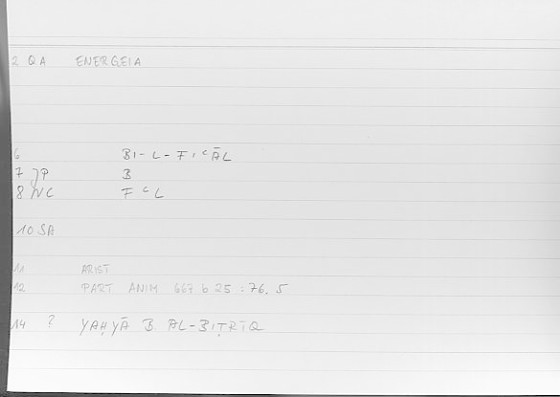 2 QA ENERGEIA
6 BI-L-FIʿĀL
7 JP B
8 VC F ʿ L
10 SA
11 ARIST
12 PART ANIM 667 b 25 : 76, 5
14 ? YAḤYĀ B. AL-BIṬRĪQ